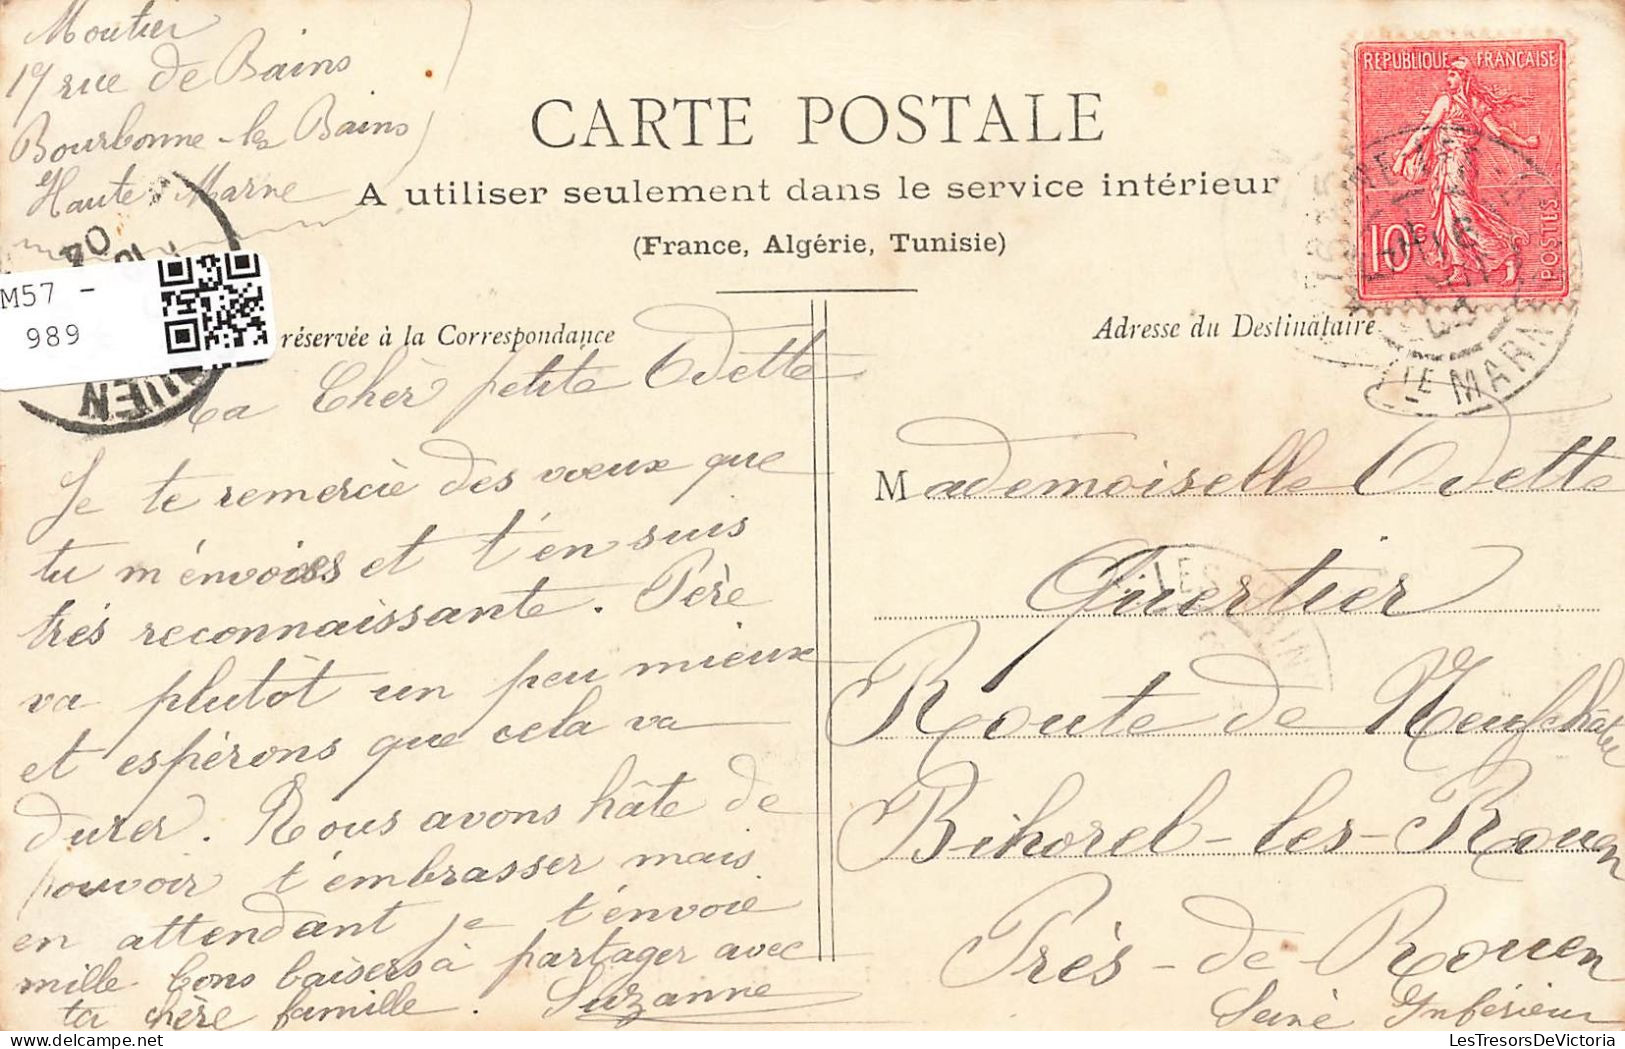 Moutier
17 rue de Bains
Bourbonne-les Bains
Haute Marne
CARTE POSTALE
A utiliser seulement dans le service intérieur
(France, Algérie, Tunisie)
REPUBLIQUE FRANÇAISE
10c
POSTES
M57 -
989
réservée à la Correspondance
Adresse du Destinataire
TE MARN
OUEN
Ma Chèr petite Odette
Je te remercie des voeux que
tu m'énvoies et t'en suis
trés reconnaissante. Père
va plutôt un peu mieux
et espérons que cela va
durer. Nous avons hâte de
pouvoir t'embrasser mais
en attendant je t'énvoie
mille bons baisers à partager avec
ta chère famille. Suzanne
Mademoiselle Odette
Quertier
LES BAIN
Route de Neufchâtel
Bihorel-les-Rouen
Près-de-Rouen
Seine Inférieur
LesTresorsDeVictoria